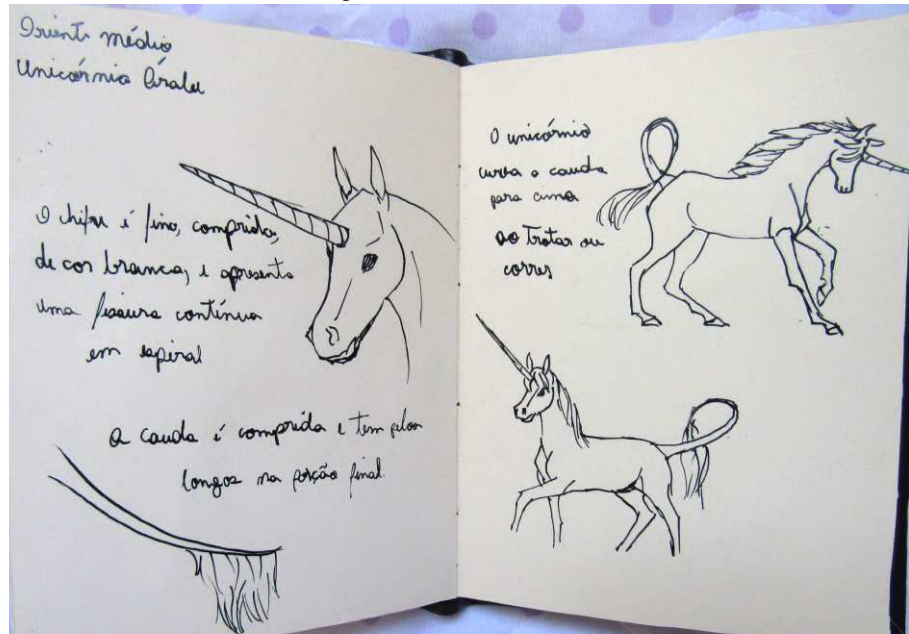 Oriente médio
Unicórnio Árabe
O chifre é fino, comprido,
de cor branca, e apresenta
uma fissura contínua
em espiral
A cauda é comprida e tem pelos
longos na porção final
O unicórnio
curva a cauda
para cima
ao trotar ou
correr